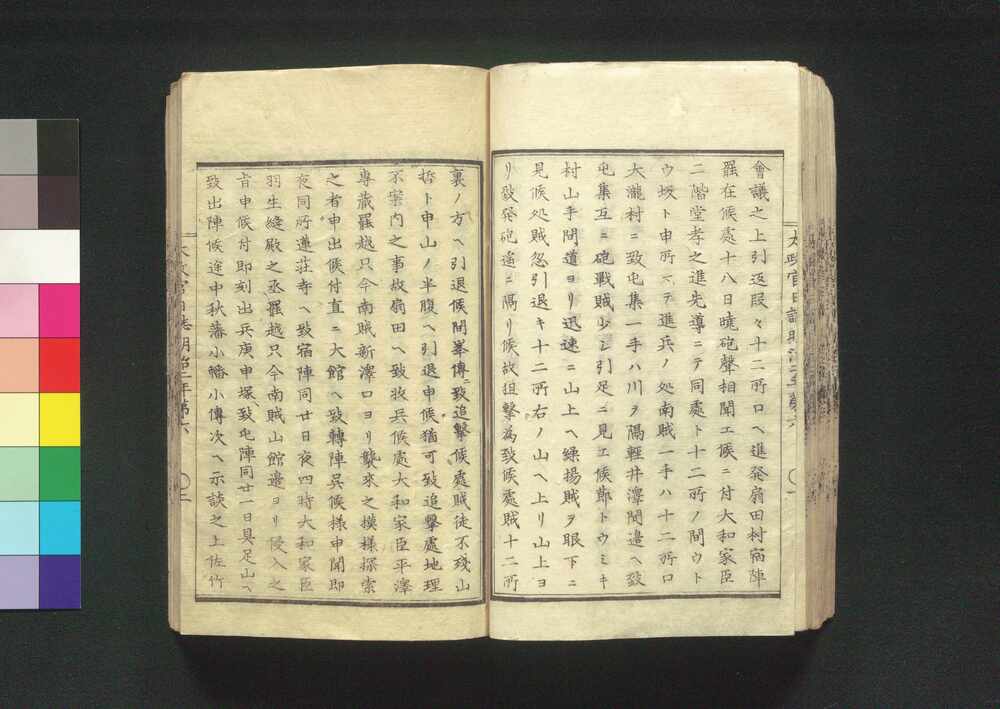 會議之上引返段々十二所口ヘ進発扇田村宿陣
罷在候處十八日曉砲聲相聞エ候ニ付大和家臣
二階堂孝之進先導ニテ同處ト十二所ノ間ウト
ウ坂ト申所マテ進兵ノ処南賊一手ハ十二所口
大瀧村ニ致屯集一手ハ川ヲ隔輕井澤関邉ヘ致
屯集互ニ砲戰賊少シ引足ニ見エ候節トウミキ
村山手間道ヨリ迅速ニ山上ヘ繰揚賊ヲ眼下ニ
見候処賊忽引退キ十二所右ノ山ヘ上リ山上ヨ
リ致発砲遙ニ隔リ候故狙撃為致候處賊十二所
裏ノ方ヘ引退候間峯傳ニ致追撃候處賊徒不殘山
哲ト申山ノ半腹ヘ引退申候猶可致追撃處地理
不案内之事故扇田ヘ致收兵候處大和家臣平澤
専藏罷越只今南賊新澤口ヨリ襲來之摸様探索
之者申出候付直ニ大館ヘ致轉陣呉候様申聞即
夜同所遍荘寺ヘ致宿陣同廿日夜四時大和家臣
羽生縫殿之丞罷越只今南賊山館邉ヨリ侵入之
旨申候付即刻出兵庚申塚致屯陣同廿一日具足山ヘ
致出陣候途中秋藩小幡小傳次ヘ示談之上佐竹
太政官日誌明治二年第六